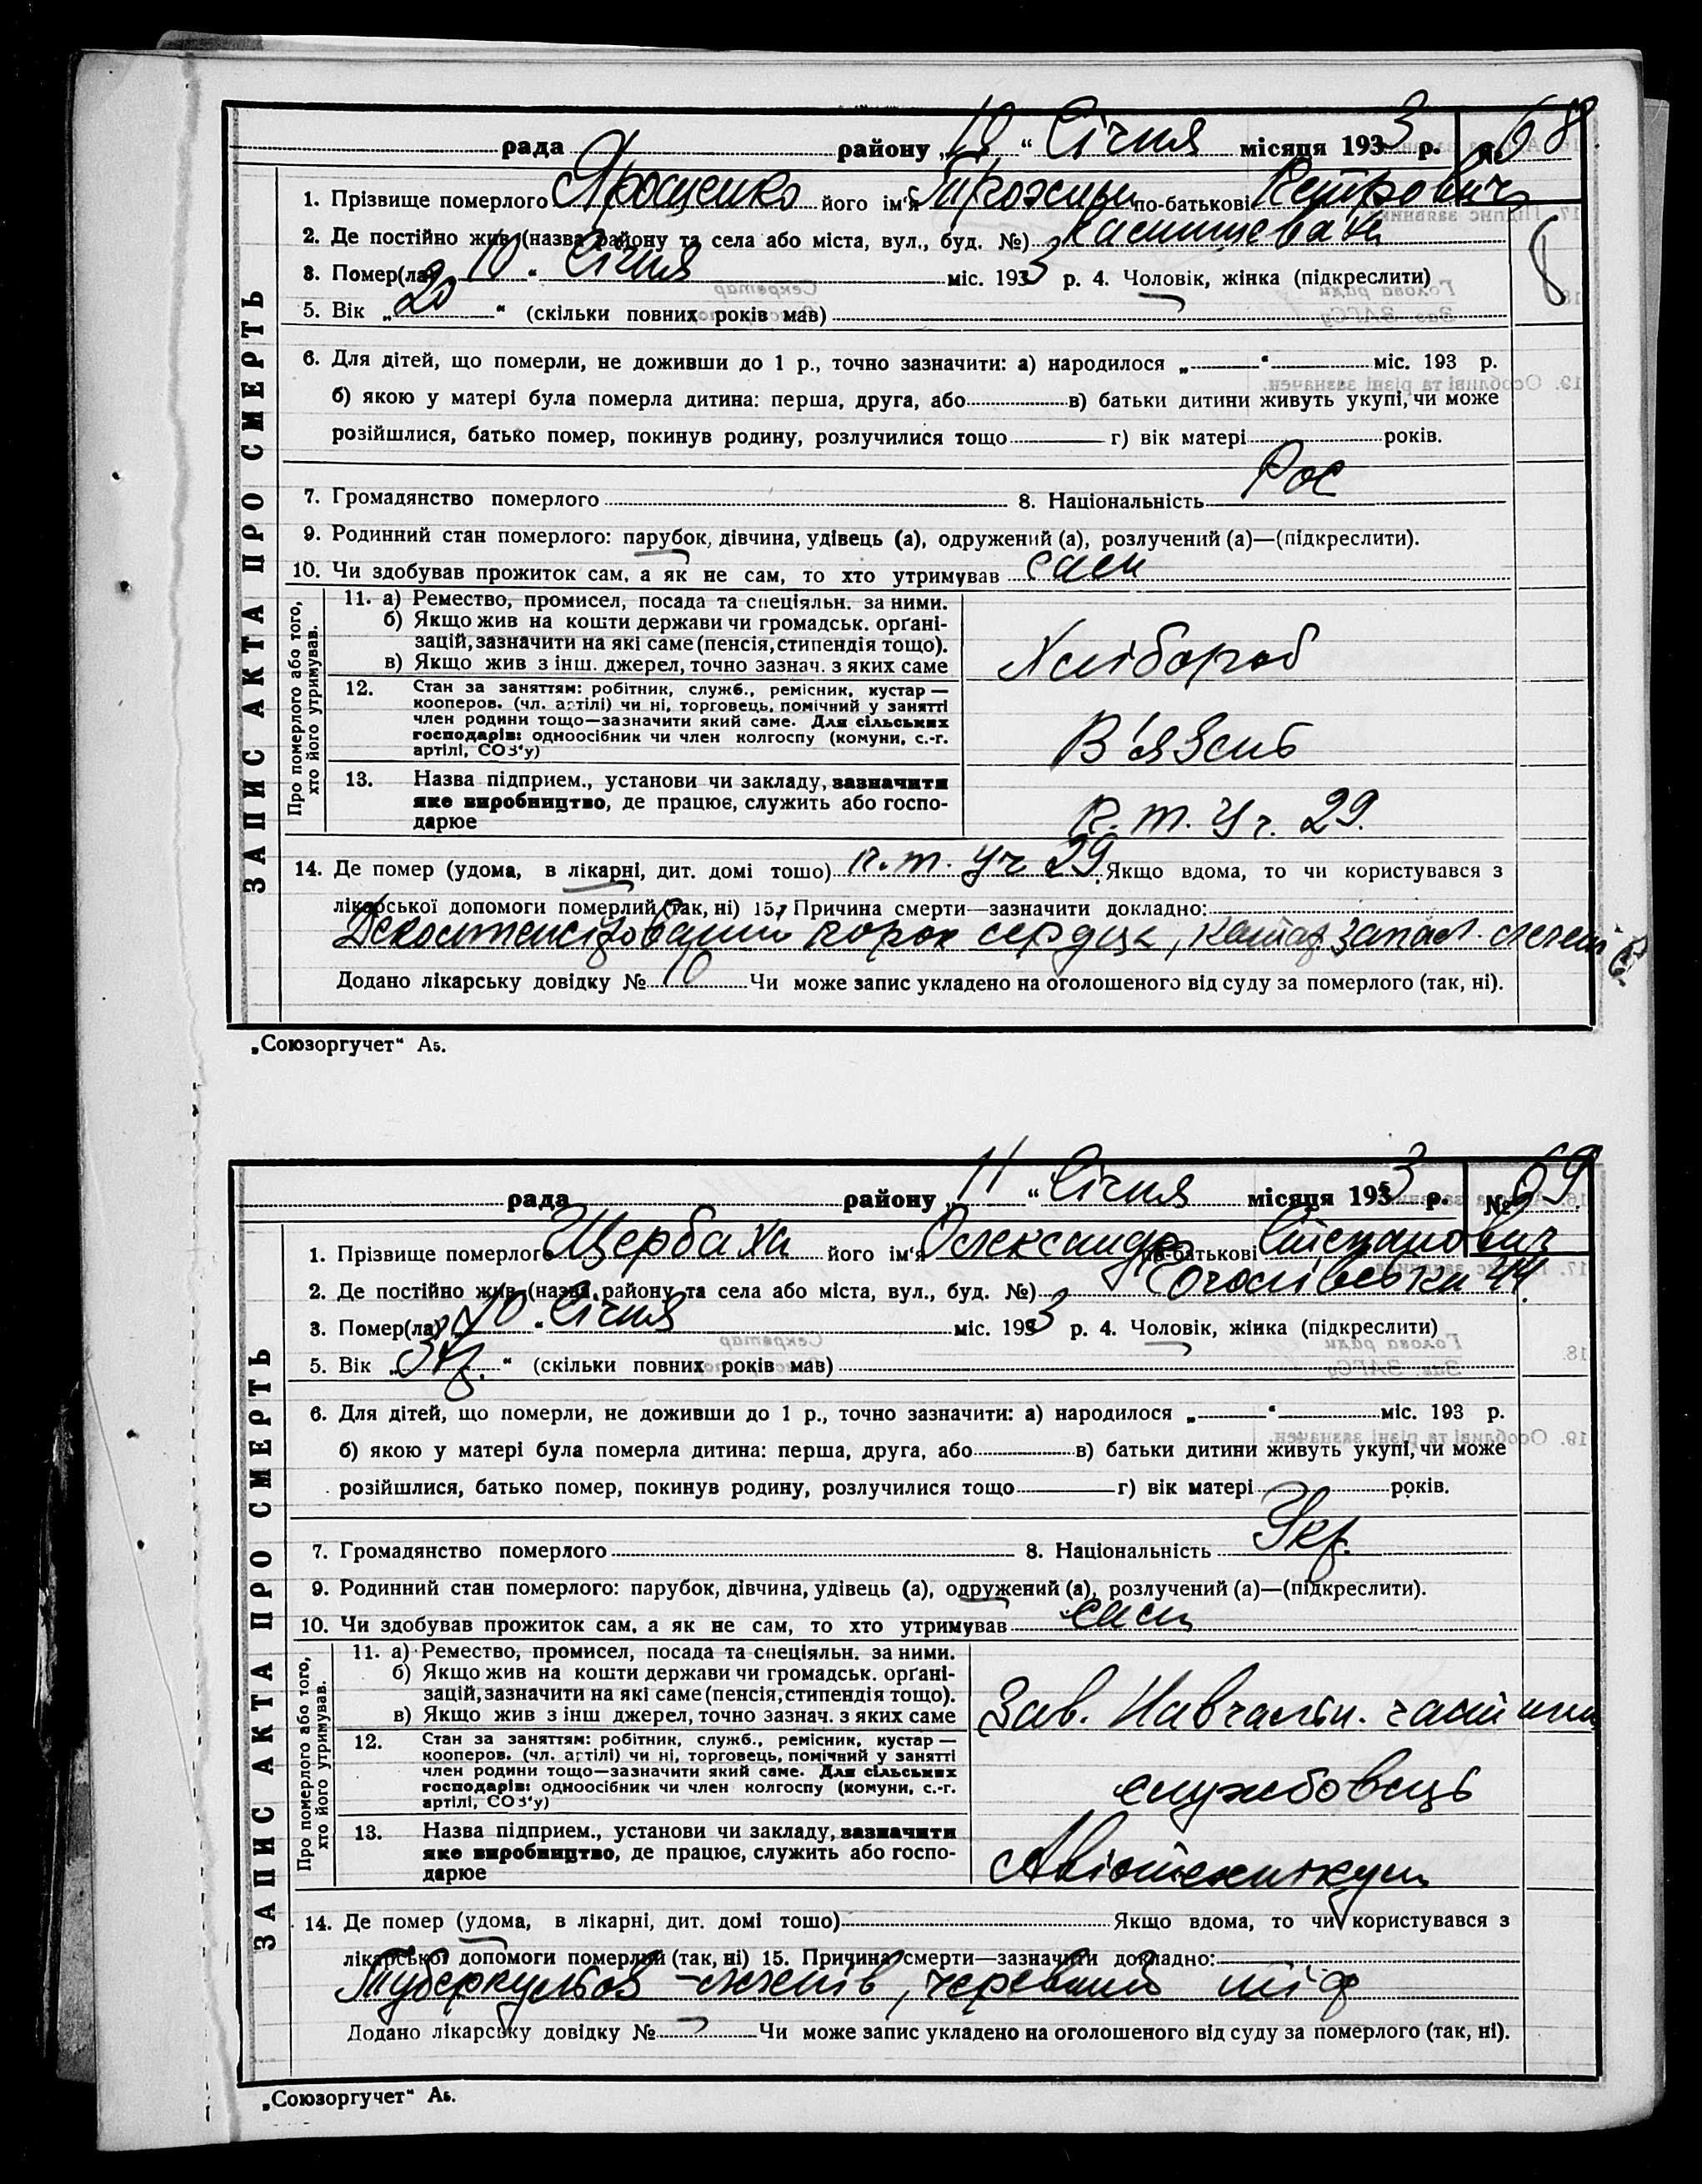 рада района „10“ Січня місяця 1933 р. № 68
1. Прізвище померлого Прощенко його ім'я Трохим по-батькові Петрович
2. Де постійно жив (назва району та села або міста, вул., буд. №)
3. Помер(ла) „10“ Січня міс. 1933 р. 4. Чоловік, жінка (підкреслити)
8
5. Вік „20“ (скільки повних років мав)
6. Для дітей, що померли, не доживши до 1 р., точно зазначити: а) народилося „ “ міс. 193 р.
б) якою у матері була померла дитина: перша, друга, або в) батьки дитини живуть укупі, чи може
розійшлися, батько помер, покинув родину, розлучилися тощо г) вік матері років.
7. Громадянство померлого 8. Національність Рос
9. Родинний стан померлого: парубок, дівчина, удівець (а), одружений (а), розлучений (а)—(підкреслити).
10. Чи здобував прожиток сам, а як не сам, то хто утримував сам
ЗАПИС АКТА ПРО СМЕРТЬ
Про померлого або того, хто його утримував.
11. а) Ремество, промисел, посада та спеціяльн. за ними.
б) Якщо жив на кошти держави чи громадськ. орґані-
зацій, зазначити на які саме (пенсія, стипендія тощо).
в) Якщо жив з інш. джерел, точно зазнач. з яких саме
Хлібороб
12. Стан за заняттям: робітник, служб., ремісник, кустар —
кооперов. (чл. артілі) чи ні, торговець, помічний у занятті
член родини тощо—зазначити який саме. Для сільських
господарів: одноосібник чи член колгоспу (комуни, с.-г.
артілі, СОЗ'у)
В'язень
13. Назва підприєм., установи чи закладу, зазначити
яке виробництво, де працює, служить або госпо-
дарює
П. т. Уч. 29.
14. Де помер (удома, в лікарні, дит. домі тощо) п. т. Уч 29. Якщо вдома, то чи користувався з
лікарської допомоги померлий (так, ні) 15. Причина смерти—зазначити докладно:
Декомпенсірований порок сердця, катар. запал. легенів
Додано лікарську довідку № 10 Чи може запис укладено на оголошеного від суду за померлого (так, ні).
„Союзоргучет“ А5.
рада району „11“ Січня місяця 1933 р. № 69
1. Прізвище померлого Щербаха його ім'я Олександр по-батькові Степанович
2. Де постійно жив (назва району та села або міста, вул., буд. №) 44.
3. Помер(ла) „10“ Січня міс. 1933 р. 4. Чоловік, жінка (підкреслити)
5. Вік „34р.“ (скільки повних років мав)
6. Для дітей, що померли, не доживши до 1 р., точно зазначити: а) народилося „ “ міс. 193 р.
б) якою у матері була померла дитина: перша, друга, або в) батьки дитини живуть укупі, чи може
розійшлися, батько помер, покинув родину, розлучилися тощо г) вік матері років.
7. Громадянство померлого 8. Національність Укр.
9. Родинний стан померлого: парубок, дівчина, удівець (а), одружений (а), розлучений (а)—(підкреслити).
10. Чи здобував прожиток сам, а як не сам, то хто утримував сам
ЗАПИС АКТА ПРО СМЕРТЬ
Про померлого або того, хто його утримував.
11. а) Ремество, промисел, посада та спеціяльн. за ними.
б) Якщо жив на кошти держави чи громадськ. орґані-
зацій, зазначити на які саме (пенсія, стипендія тощо).
в) Якщо жив з інш джерел, точно зазнач. з яких саме
Зав. Навчальн. частини
12. Стан за заняттям: робітник, служб., ремісник, кустар —
кооперов. (чл. артілі) чи ні, торговець, помічний у занятті
член родини тощо—зазначити який саме. Для сільських
господарів: одноосібник чи член колгоспу (комуни, с.-г.
артілі, СОЗ'у)
службовець
13. Назва підприєм., установи чи закладу, зазначити
яке виробництво, де працює, служить або госпо-
дарює
Авіотехнікум
14. Де помер (удома, в лікарні, дит. домі тощо) Якщо вдома, то чи користувався з
лікарської допомоги померлий (так, ні) 15. Причина смерти—зазначити докладно:
Туберкульоз легенів, черевний тіф
Додано лікарську довідку № Чи може запис укладено на оголошеного від суду за померлого (так, ні).
„Союзоргучет“ А5.